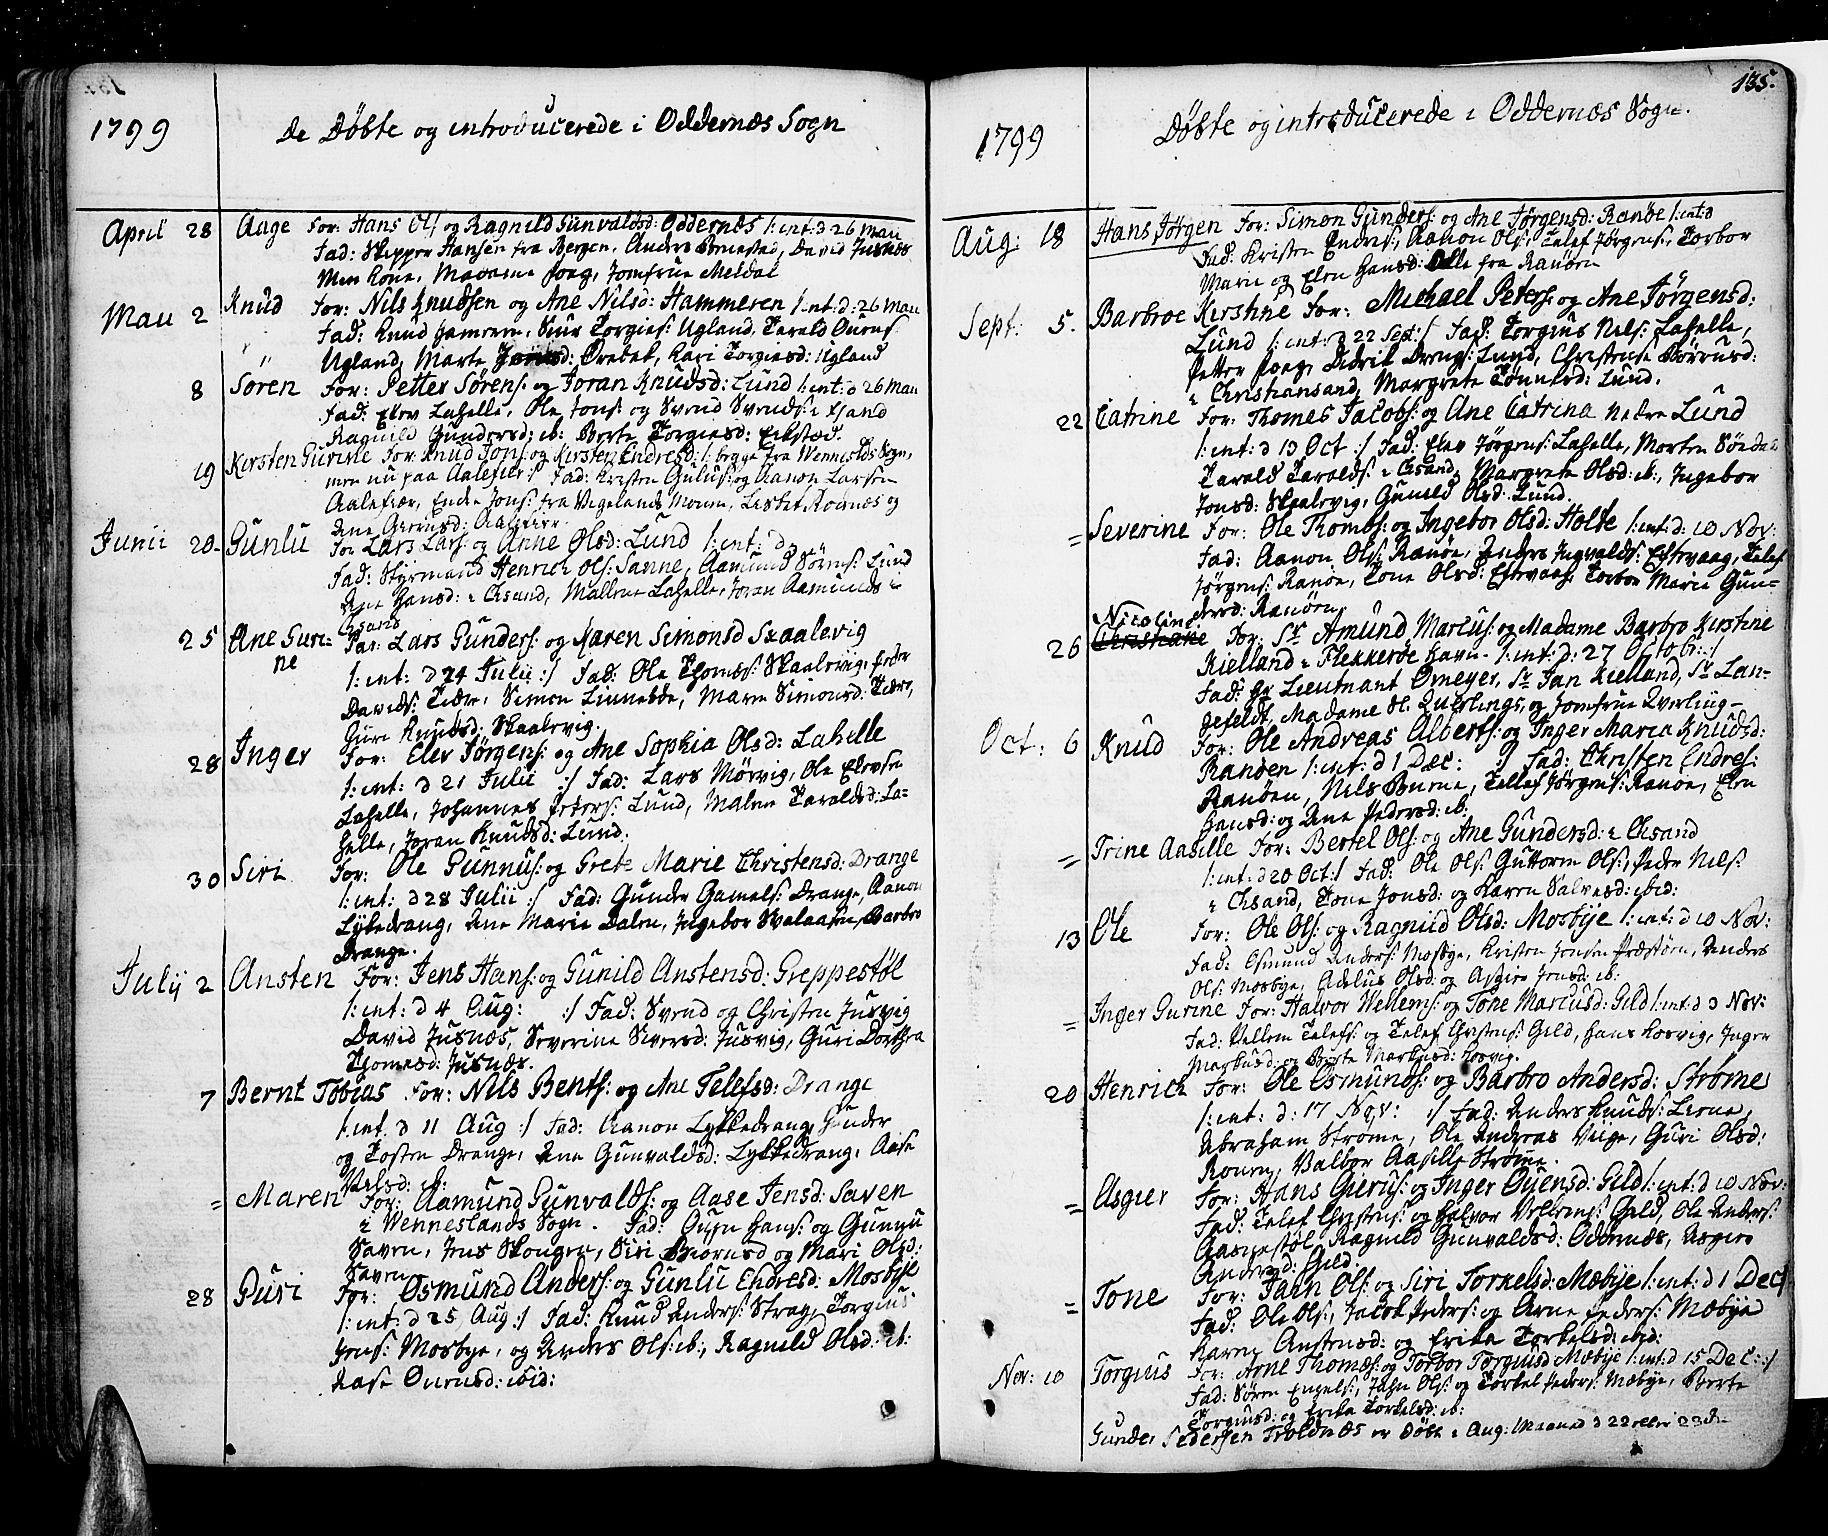 1799
De Döbte og introducerede i Oddernæs Sogn
April 28 Aage For: Hans Ols: og Ragnild Gunvaldsd: Oddernæs /: int: d 26 Maii
Fad: Skipper Hansen fra Bergen, Anders David Jusnæs
Min Kone, Madame Jomfrue Meldal
Maii 2 Knud For: Nils Knudsen og Ane Nilsd: Hammeren /: int: d: 26 Maii
Fad: Knud Torgies: Ugland, Tarald
Ugland, Marte Kari Torgiesd: Ugland
8 Søren For: Petter Sørens: og Joran Knudsd: Lund /: int: d 26 Maii
Fad: Elev Lahelle, Ole Jons: og Svend Svends: i Xsand
Ragnild Gundersd: ib: Berte Torgiesd:
19 Kirsten Gurine For: Knud Jons: og Kirsten Endresd: /: begge fra Wennislds Sogn,
men nu paa Aalefier :/ Fad: Kristen og Aanon Larsen
Aalefiær, Endre Jons: fra Vigelands Moene, Lisbet og
Ane Aalefiær.
Junii 20 Gunlu For Lars Lars: og Anne Olsd: Lund /: int: d
Fad: Styrmand Henrich Ols: Sanne, Aamund Sørens: Lund
Ane Hansd: i Chsand, Mallene Lahelle, Joran Aamunds i
Chsand
25 Ane Guri- For: Lars Gunders: og Karen Simonsd Skaalevig
ne /: int: d 24 Julii :/ Fad: Ole Thomæs: Skaalevig, Peder
Davids: Simon Linnebøe, Maren Simonsd:
Guri Knudsd, Skaalevig.
28 Inger For: Elev Jørgens: og Ane Sophia Olsd: Lahelle
/: int: d 21 Julii :/ Fad: Lars Mørvig, Ole Elevse
Lahelle, Johannes Peters: Lund, Malene Taraldsd: La-
helle, Joran Knudsd: Lund.
30 Siri For: Ole Gunnus: og Grete Marie Christensd: Drange
/: int: d 28 Julii :/ Fad: Gunder Gamels: Drange, Aanon
Lykedrang, Ane Marie Dalen, Ingebor Barbro
Drange.
Julij 2 Ansten For: Jens Hans: og Gunild Anstensd: Greppestøl
/: int: d 4 Aug: :/ Fad: Svend og Christen Jusvig
David Jusnæs, Severine Siversd: Jusvig, Guri Dorthea
Thomesd: Jusnæs.
7 Bernt Tobias For: Nils Bents: og Ane Telefsd: Drange
/: int: d 11 Aug :/ Fad: Aanon Lykkedrang, Gunder
og Tosten Drange, Ane Gunvaldsd: Lykkedrang, Aase
Nilsd: ib:
= Maren For: Aamund Gunvalds: og Aase Jensd: Saven
i Venneslands Sogn. Fad: Hans: og Gunnu
Saven, Jens Skougen, Siri Biørnsd og Mari Olsd:
Saven
28 Guri For: Osmund Anders: og Gunlu Endresd: Mosbye
/: int: d 25 Aug :/ Fad: Knud Anders: Strag, Torgius
Jens: Mosbye, og Anders Ols: ib:, Ragnild Olsd: ib:
Aase ibid:
135.
1799
Döbte og introducerede i Oddernæs Sogn.
Aug: 18 Hans Jörgen For: Simon Gunders: og Ane Jørgensd: Ranøe /: int: d
Fad: Kristen Endres:, Aanon Ols:, Telef Jørgens:, Torbor
Marie og Elen Hansd: Alle fra Ranøen
Sept: 5. Barbroe Kirstine For: Michael Peters: og Ane Jørgensd:
Lund /: int: d 22 Sept :/ Fad: Torgius Nils: Lahelle,
Petter Didrik Lund, Christense
i Christiansand, Margrete Tønnesd: Lund.
22 Catrine For: Thomes Jacobs: og Ane Catrina nedre Lund
/: int: d 13 Oct :/ Fad: Elev Jörgens: Lahelle, Morten
Tarald Taralds: i Chsand, Margrete Olsd: ib:, Ingebor
Jonsd: Skaalevig, Gunild Olsd: Lund.
= Severine For: Ole Thombs: og Ingebor Olsd: Holte /: int: d: 10 Nov:
Fad: Aanon Ols: Ranøe, Anders Ingvalds: Telef
Jørgens: Ranøe, Tone Olsd: Torbor Marie Gun-
dersd: Ranøen
Nicoline
26 Christiane For: Sr Amund Marcus: og Madame Barbro Kirstine
Kielland i Flekkerøe Havn /: int: d: 27 Octobr: :/
Fad: Hr Lieutnant Omeyer, Sr Jan Kielland, Sr Lan-
gefeldt, Madame Sl. Qverlings, og Jomfrue Qverling-
Oct: 6 Knud For: Ole Andreas Alberts: og Inger Maria Knudsd:
Ranøen /: int: d 1 Dec: :/ Fad: Christen Endres:
Ranøen, Nils Burne, Tellef Jørgens: Ranøe, Elen
Hansd: og Ane Pedersd: ib.
= Trine Aasille For: Bertel Ols: og Ane Gundersd: i Chsand
/: int: d 20 Oct :/ Fad: Ole Ols: Guttorm Ols:, Peder Nils:
i Chsand, Tone Jonsd: og Karen Salvesd: ibid:
13 Ole For: Ole Ols: og Ragnild Olsd: Mosbye /: int: d 10 Nov:
Fad: Osmund Anders: Mosbye, Kristen Jensen Anders
Ols: Mosbye, Adelus Olsd: og Asgier Jensd: ib:
= Inger Gurine For: Halvor Wellems: og Tone Marcusd: Gild /: int: d 3 Nov:
Fad: Vellem Telefs: og Telef Christens: Gild, Hans Kosvig, Inger
Markusd: og Berte Markusd: Kosvig.
20 Henrich For: Ole Osmunds: og Barbro Andersd: Strøme
/: int: d: 17 Nov: :/ Fad: Anders Knuds: Liene,
Abraham Strøme, Ole Andreas Viige, Guri Olsd:
Ronen, Valbor Aasille Strøme.
= Asgier For: Hans Gierus: og Inger Öyensd: Gild /: int: d 10 Nov:
Fad: Telef Christens: og Halvor Vellems: Gild, Ole Anders:
Aasnestøl, Ragnild Gunvaldsd: Oddernæs, Asgier
Andersd: Gild.
= Tone For: Jahn Ols: og Siri Torkelsd: Mæbye /: int: d 1 Dec:
Fad: Ole Ols:, Jacob Peders: og Arne Peders: Mæbye
Karen Anstensd: og Erika Torkelsd: ibid:
Nov: 10 Torgius For: Arne Thomæs: og Torbor Torgiusd Mæbye /: int: d 15 Dec: :/
Fad: Søren Engels:, Jahn Ols: og Torkel Peders: Mæbye, Berte
Torgiusd: og Erika Torkelsd: ib:
Gunder Pedersen Troldnæs er Døbt i Aug: Maaned d 22 eller 23de